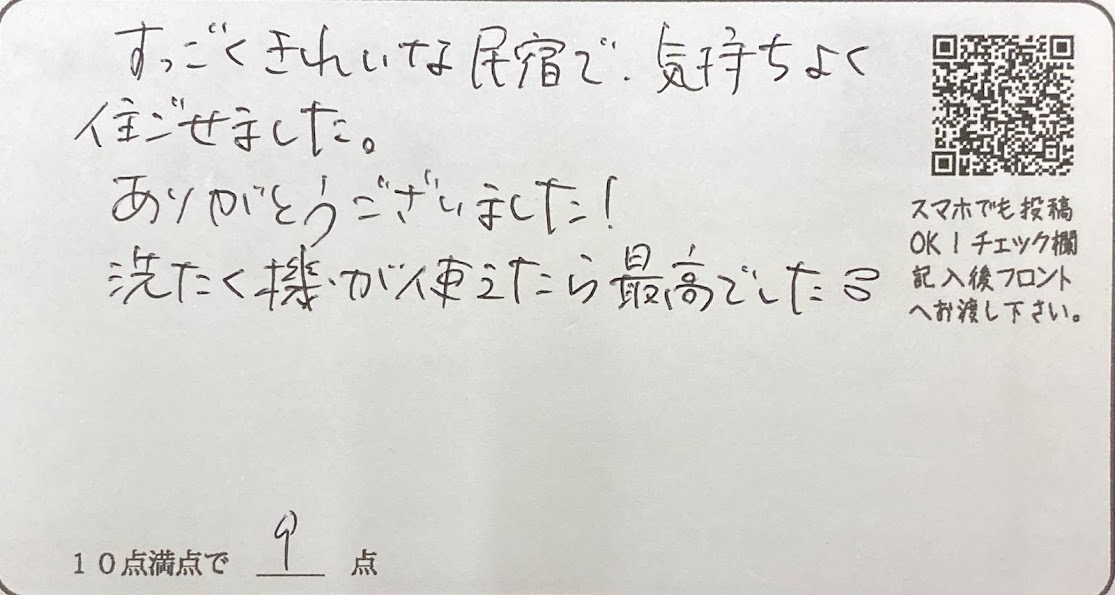 すっごくきれいな民宿で、気持ちよく
住ごせました。
ありがとうございました!
洗たく機が使えたら最高でした
スマホでも投稿
OK!チェック欄
記入後フロント
へお渡し下さい。
10点満点で 9 点